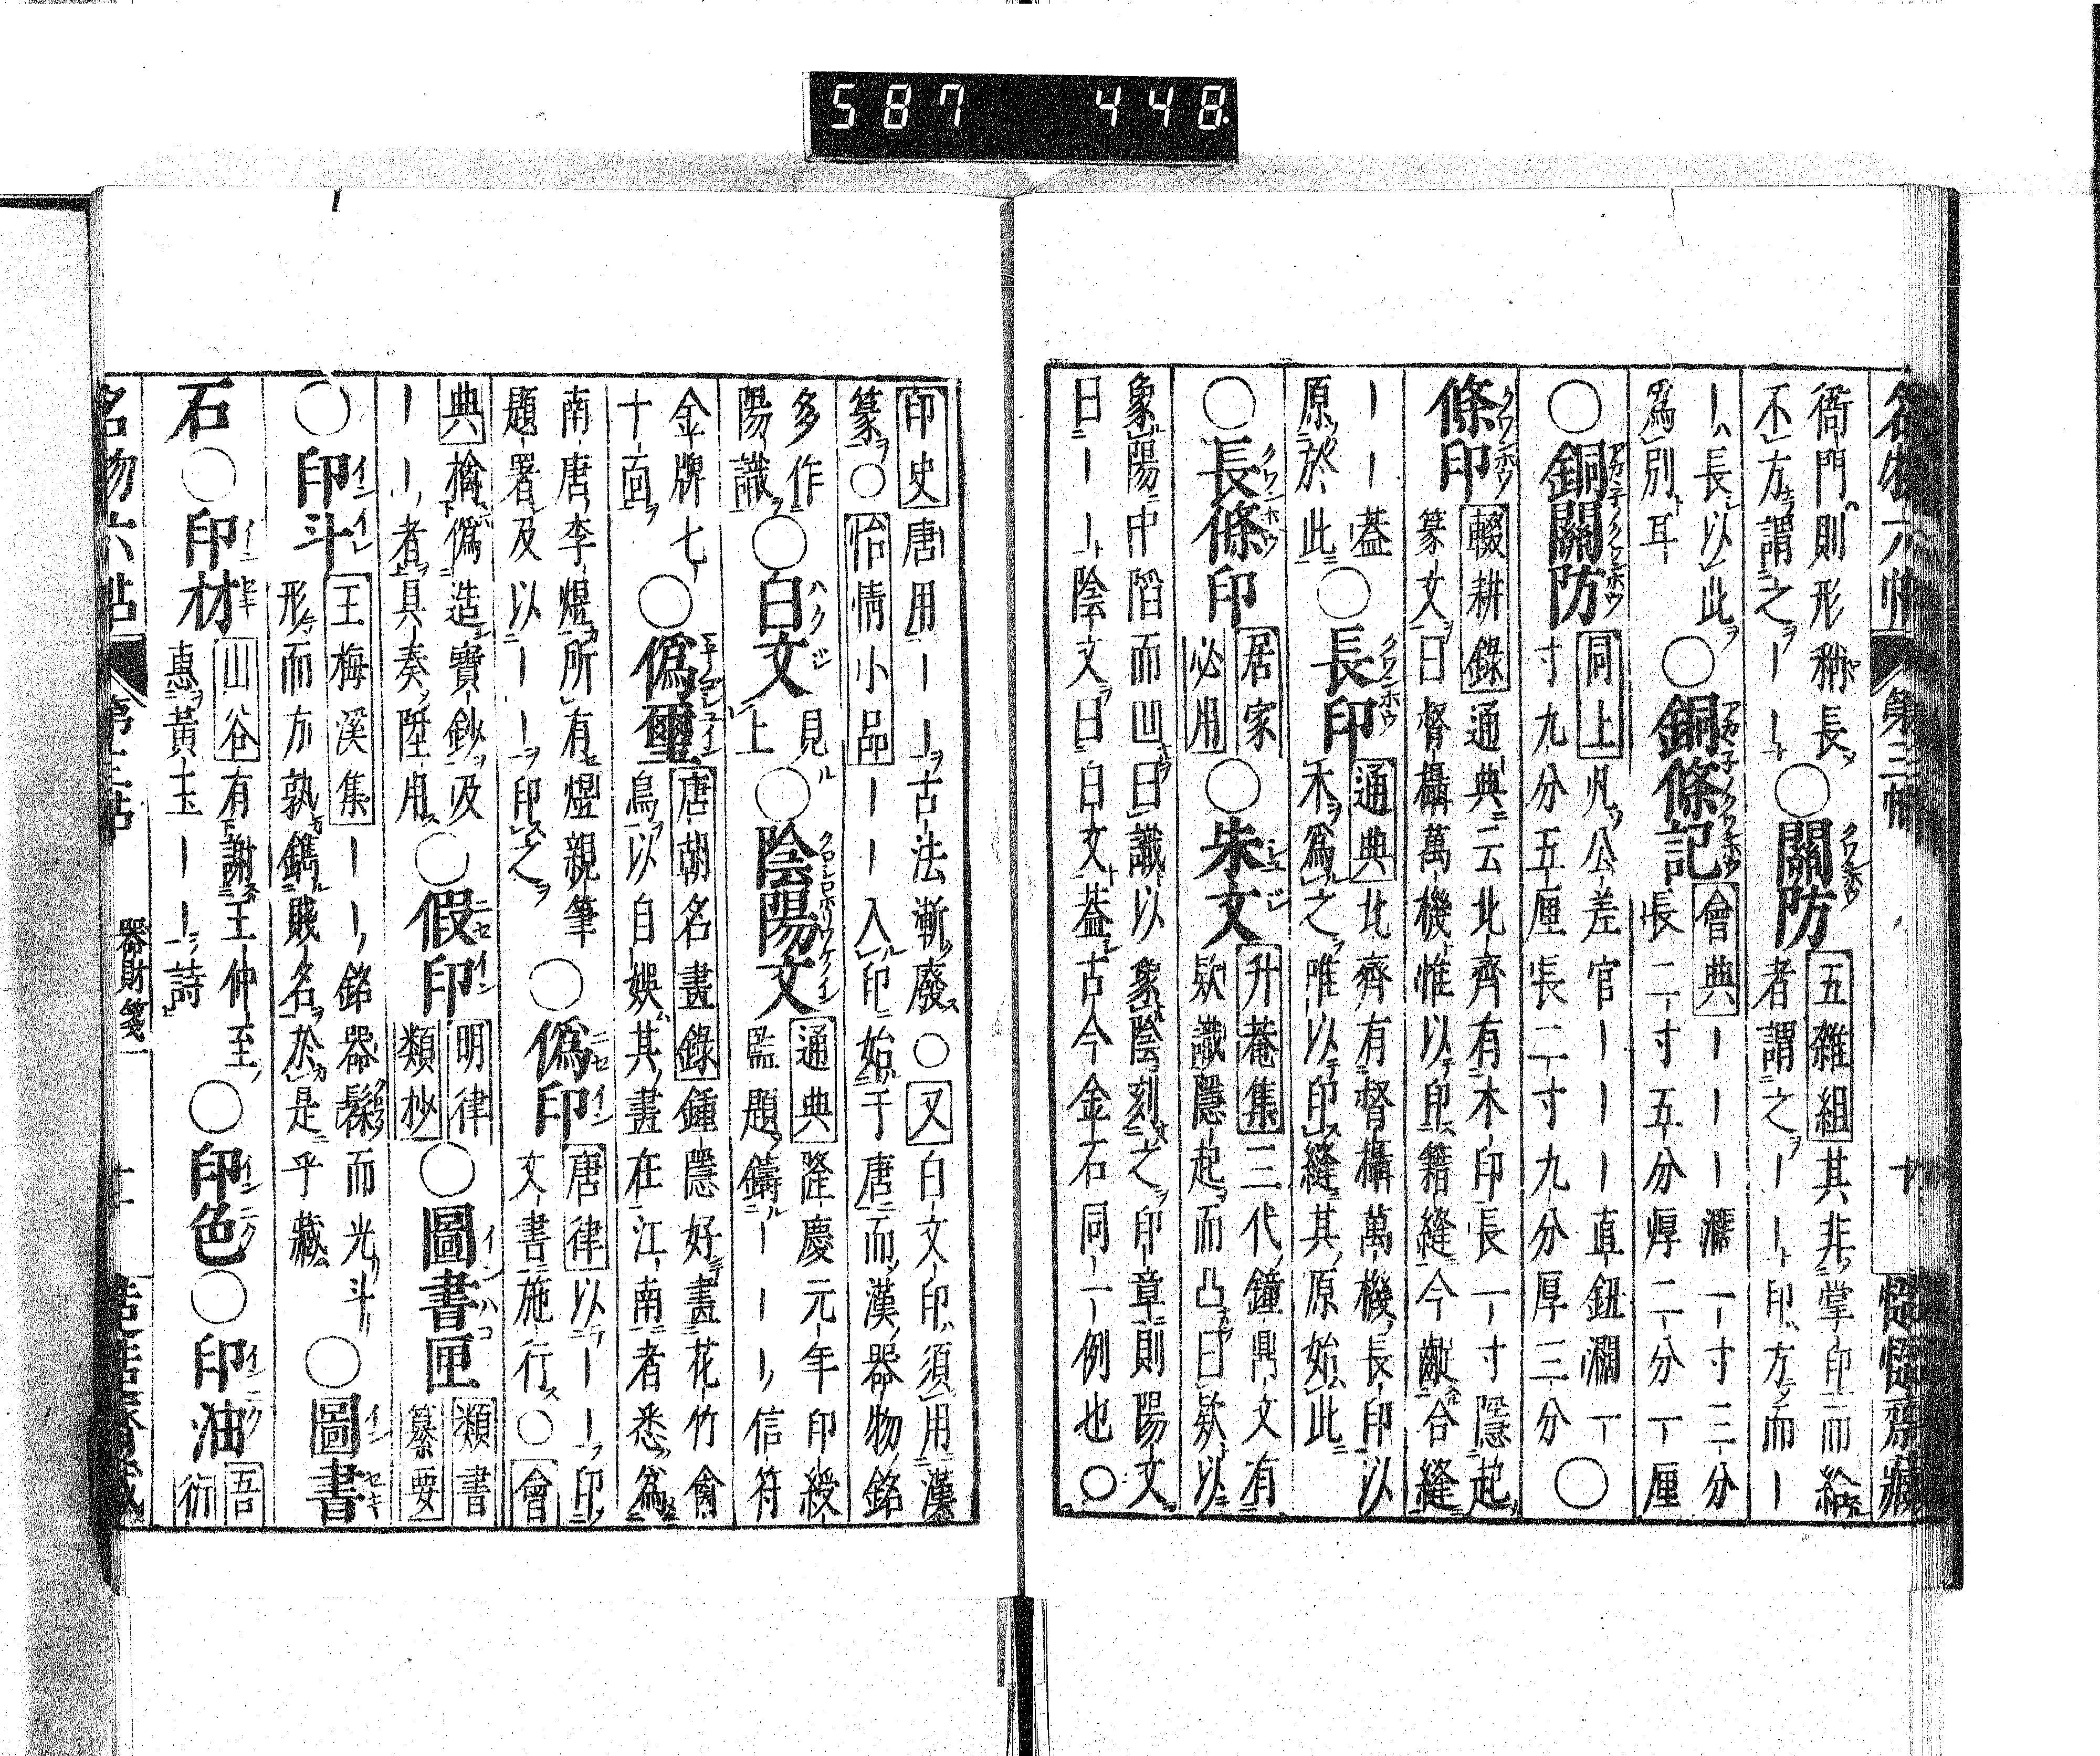 名物六帖 第三帖 十 慥慥齋藏
衙門則形稍長
不方謂之ーー
○關防
五雜組其非掌印而給
者謂之ーー印方而ー
ー長以此
爲別耳
○銅條記
會典ーーー濶一寸三分
長二寸五分厚二分一厘
○銅關防
同上凡公差官ーーー直鈕濶一
寸九分五厘長二寸九分厚三分
○
條印
輟耕錄通典云北齊有木印長一寸隱起
篆文曰督攝萬機惟以印籍縫今齪合縫
ーー葢
原於此
○長印
通典北齊有督攝萬機長印以
木爲之唯以印縫其原始此
○長條印
居家
必用
○朱文
升菴集三代鐘鼎文有
欵識隱起而凸曰欵以
象陽中陷而凹曰識以象陰刻之印章則陽文
曰ーー陰文曰白文葢古今金石同一例也○
印史唐用ーー古法漸廢○又白文印須用漢
篆○怡情小品ーー入印始于唐而漢器物銘
多作
陽識
○白文
見
上
○陰陽文
通典隆慶元年印綬
監題鑄ーーー信符
金牌七
十面
○僞璽
唐胡名畫錄鍾隱好畫花竹禽
鳥以自娛其畫在江南者悉爲
南唐李煜所有煜親筆
題署及以ーー印之
○僞印
唐律以ーー印
文書施行○會
典擒僞造寶鈔及
ーー者具奏陞用
○假印
明律
類抄
○圖書匣
類書
纂要
○印斗
王梅溪集ーー銘器髹而光斗
形而方孰鐫賤名於是乎藏
○圖書
石
○印材
山谷有謝王仲至
惠黃玉ーー詩
○印色○印油
吾
衍
第三帖 器財箋一 十一